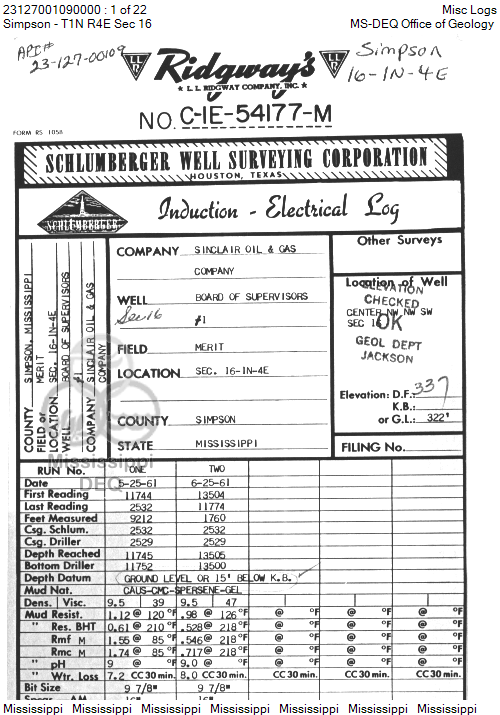 23127001090000 : 1 of 22 Misc Logs
Simpson - T1N R4E Sec 16 MS-DEQ Office of Geology
API#
23-127-00109
Ridgway's
L. L. RIDGWAY COMPANY, INC.
Simpson
16-1N-4E
NO. C-IE-54177-M
FORM RS 1058
SCHLUMBERGER WELL SURVEYING CORPORATION
HOUSTON, TEXAS
SCHLUMBERGER
Induction - Electrical Log
COUNTY SIMPSON, MISSISSIPPI
FIELD or MERIT
LOCATION SEC. 16-1N-4E
WELL BOARD OF SUPERVISORS
#1
COMPANY SINCLAIR OIL & GAS
COMPANY
COMPANY SINCLAIR OIL & GAS
COMPANY
WELL BOARD OF SUPERVISORS
Sec 16
#1
FIELD MERIT
LOCATION SEC. 16-1N-4E
COUNTY SIMPSON
STATE MISSISSIPPI
Other Surveys
Location of Well
ELEVATION
CHECKED
CENTER NW NW SW
SEC 16
OK
GEOL DEPT
JACKSON
Elevation: D.F.: 337
K.B.:
or G.L.: 322'
FILING No.
Mississippi
DEQ
RUN No. ONE TWO
Date 5-25-61 6-25-61
First Reading 11744 13504
Last Reading 2532 11774
Feet Measured 9212 1760
Csg. Schlum. 2532 2532
Csg. Driller 2529 2529
Depth Reached 11745 13505
Bottom Driller 11752 13500
Depth Datum (GROUND LEVEL OR 15' BELOW K.B.)
Mud Nat. CAUS-CMC-SPERSENE-GEL
Dens. | Visc. 9.5 39 9.5 47
Mud Resist. 1.12 @ 120 °F .98 @ 126 °F @ °F @ °F @ °F
" Res. BHT 0.61 @ 210 °F .528 @ 218 °F @ °F @ °F @ °F
" Rmf M 1.55 @ 85 °F .546 @ 218 °F @ °F @ °F @ °F
" Rmc M 1.74 @ 85 °F .717 @ 218 °F @ °F @ °F @ °F
" pH 9 @ °F 9.0 @ °F @ °F @ °F @ °F
" Wtr. Loss 7.2 CC 30 min. 8.0 CC 30 min. CC 30 min. CC 30 min. CC 30 min.
Bit Size 9 7/8" 9 7/8"
Mississippi Mississippi Mississippi Mississippi Mississippi Mississippi Mississippi